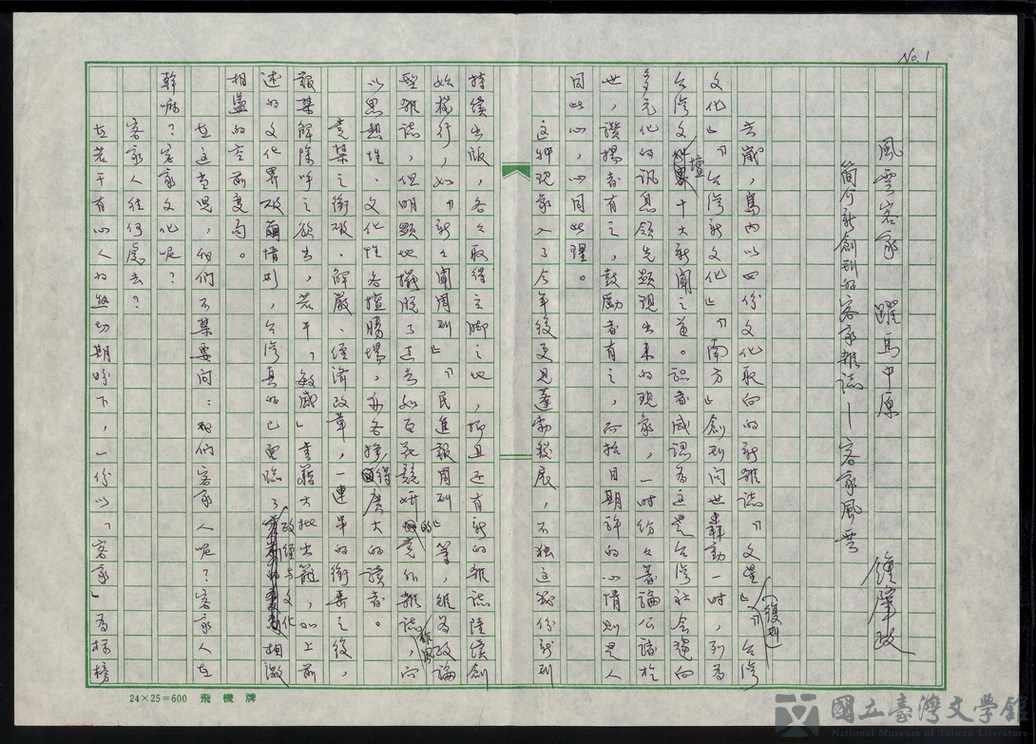 No. 1
風雲客家 躍馬中原
簡介新創刊的客家雜誌——客家風雲
鍾肇政
去歲，島內以四份文化取向的新雜誌「文星」(復刊)「台灣
文化」「台灣新文化」「南方」創刊問世轟動一時，列為
台灣文壇十大新聞之首。識者咸認為這是台灣社會邁向
多元化的訊息領先顯現出來的現象，一時紛々著論公諸於
世，讚揚者有之，鼓勵者有之，而拭目期許的心情則是人
同此心，心同此理。
這種現象入了今年後更見蓬勃發展，不獨這數份新刊
持續出版，各々取得立腳之地，抑且還有新的雜誌陸續創
始發行，如「新々聞周刊」「民進報周刊」等，雖為政論
型雜誌，但明顯地擺脫了過去如百花競妍的黨外雜誌，而
以思想性、文化性各擅勝場，亦各擁得廣大的讀者。
黨禁之衝破、解嚴、經濟改革，一連串的衝擊之後，
報禁解除呼之欲出，若干「敏感」書籍大批出籠，如上前
述的文化界破繭情形，台灣真的已面臨了政經與文化相激
相盪的空前變局。
在這當兒，我們不禁要問：我們客家人呢？客家人在
幹嘛？客家文化呢？
客家人往何處去？
在若干有心人的熱切期盼下，一份以「客家」為標榜
24×25=600 飛機牌
國立臺灣文學館
National Museum of Taiwan Literature